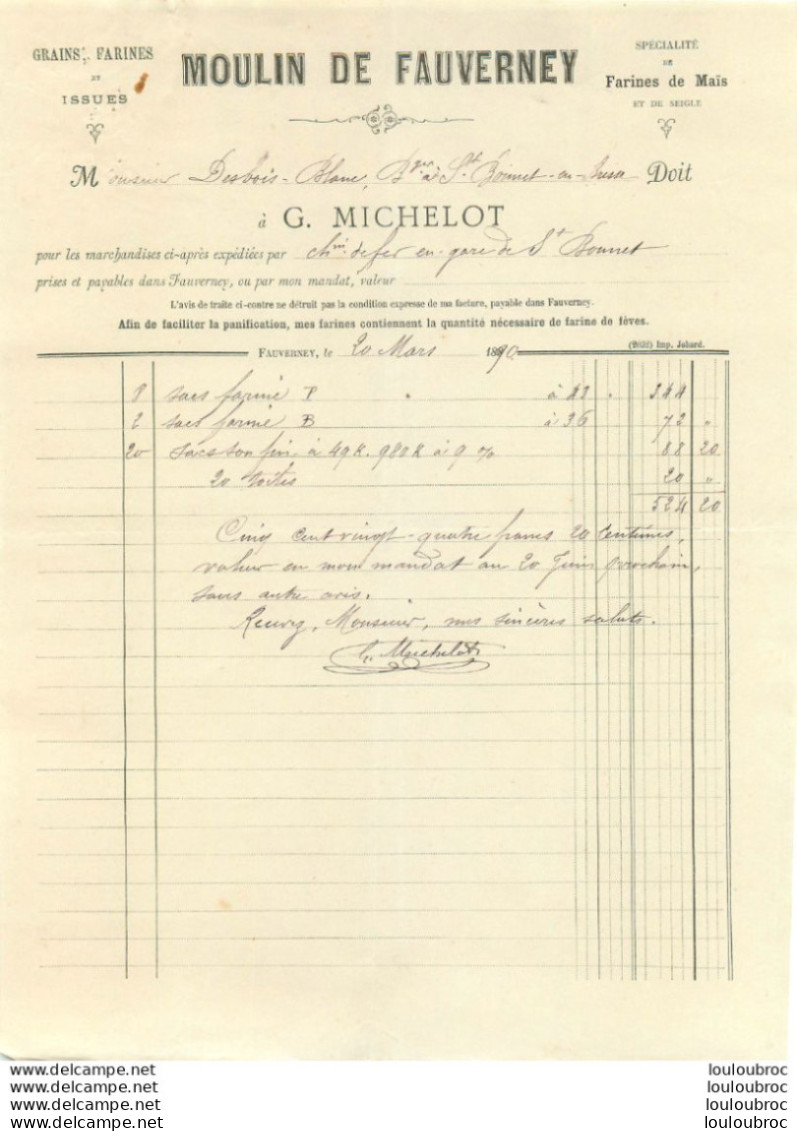 GRAINS, FARINES
ET
ISSUES
MOULIN DE FAUVERNEY
SPÉCIALITÉ
DE
Farines de Maïs
ET DE SEIGLE
Monsieur Desbois-Blanc, Bger à St Bonnet-en-Bresse Doit
à G. MICHELOT
pour les marchandises ci-après expédiées par chin de fer en gare de St Bonnet
prises et payables dans Fauverney, ou par mon mandat, valeur
L'avis de traite ci-contre ne détruit pas la condition expresse de ma facture, payable dans Fauverney.
Afin de faciliter la panification, mes farines contiennent la quantité nécessaire de farine de fèves.
FAUVERNEY, le 20 Mars 1890
(2022) Imp. Jobard.
8 sacs farine P " à 43 " 344
2 sacs farine B à 36 72 "
20 sacs son fin à 49 K. 980 K à 9 % 88 20
20 toiles 20 "
524 20
Cinq cent vingt-quatre francs 20 centimes,
valeur en mon mandat au 20 Juin prochain,
sans autre avis.
Recevez, Monsieur, mes sincères saluts.
G. Michelot
www.delcampe.net louloubroc
www.delcampe.net louloubroc
www.delcampe.net louloubroc
www.delcampe.net louloubroc